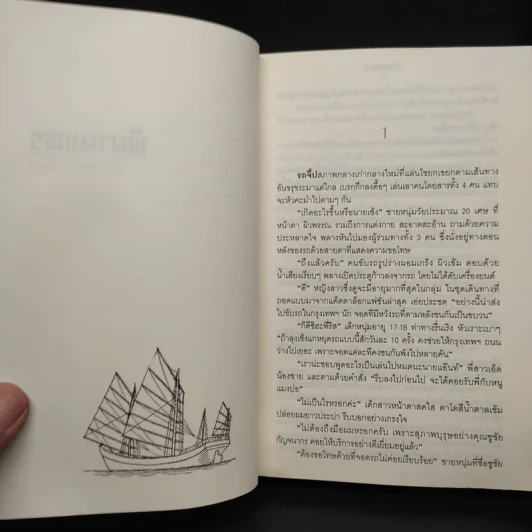 1
รถจี๊ปสภาพกลางเก่ากลางใหม่ที่แล่นโขยกเขยกตามเส้นทาง
อันขรุขระมาแต่ไกล เบรกกึกลงดื้อๆ เล่นเอาคนโดยสารทั้ง 4 คน แทบ
จะหัวคะมำไปตามๆ กัน
"เกิดอะไรขึ้นหรือนายเซ้ง" ชายหนุ่มวัยประมาณ 20 เศษ ที่
หน้าตา ผิวพรรณ รวมถึงการแต่งกาย สะอาดสะอ้าน ถามด้วยความ
ประหลาดใจ พลางหันไปมองผู้ร่วมทางทั้ง 3 คน ซึ่งนั่งอยู่ทางตอน
หลังของรถด้วยสายตาที่แสดงความขอโทษ
"ถึงแล้วครับ" คนขับรถรูปร่างผอมเกร็ง ผิวเข้ม ตอบด้วย
น้ำเสียงเรียบๆ พลางเปิดประตูก้าวลงจากรถ โดยไม่ได้ดับเครื่องยนต์
"ดี" หญิงสาวซึ่งดูจะมีอายุมากที่สุดในกลุ่ม ในชุดเดินทางที่
ถอดแบบมาจากแค็ตตาล็อกแฟชั่นล่าสุด เอ่ยประชด "อย่างนี้น่าส่ง
ไปขับรถในกรุงเทพฯ นัก จอดที่มีหวังรถที่ตามหลังชนกันเป็นขบวน"
"ก็ดีซิฮะพี่ริส" เด็กหนุ่มอายุ 17-18 ท่าทางรื่นเริง หัวเราะเบาๆ
"ถ้าลุงเซ้งแกหยุดรถแบบนี้สักวันละ 10 ครั้ง คงช่วยให้กรุงเทพฯ ถนน
ว่างไปเยอะ เพราะจอดแต่ละทีคงชนกันพังไปหลายคัน"
"เราน่ะชอบพูดอะไรเป็นเล่นไปหมดนะนายแอ๊นท์" พี่สาวเอ็ด
น้องชาย และตามด้วยคำสั่ง "รีบลงไปก่อนไป จะได้คอยรับพี่กับหนู
แมงปอ"
"ไม่เป็นไรหรอกค่ะ" เด็กสาวหน้าตาสดใส ตาโตสีน้ำตาลเข้ม
ปล่อยผมยาวประบ่า รีบบอกอย่างเกรงใจ
"ไม่ต้องถึงมือผมหรอกครับ เพราะสุภาพบุรุษอย่างคุณชูชัย
กัญจนากร คอยให้บริการอย่างดีเยี่ยมอยู่แล้ว"
"ต้องขอโทษด้วยที่จอดรถไม่ค่อยเรียบร้อย" ชายหนุ่มที่ชื่อชูชัย